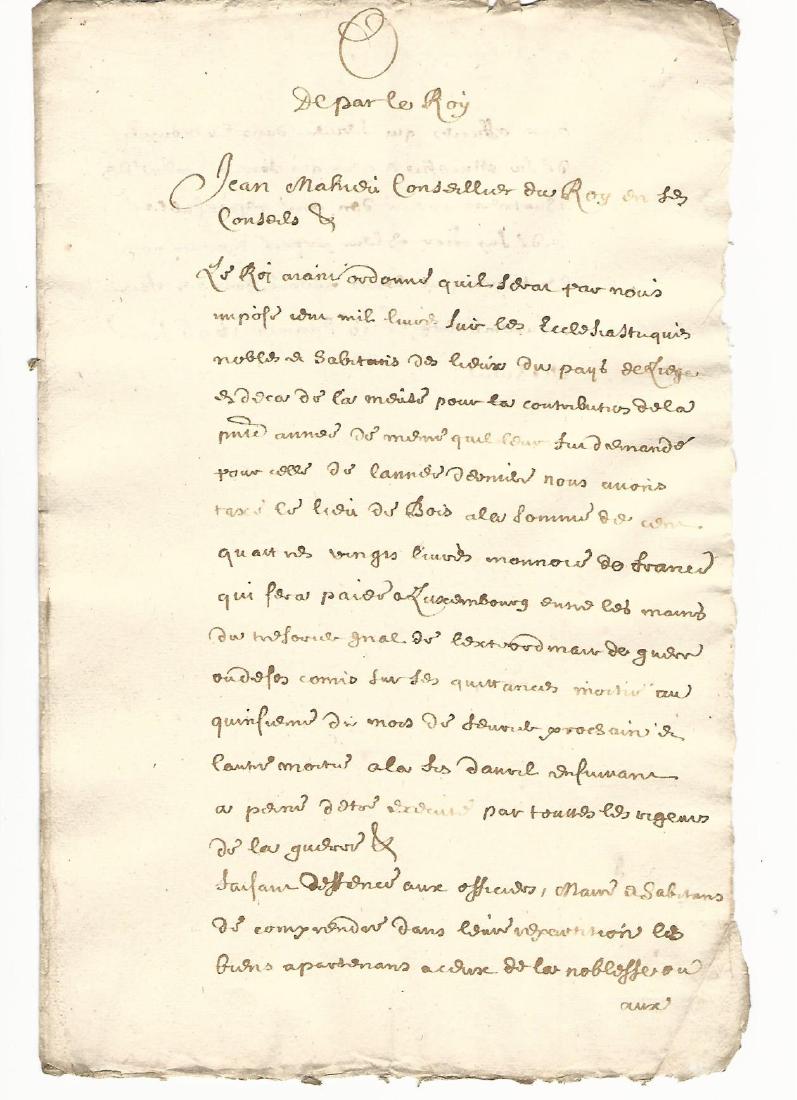 De par le Roÿ
Jean Mahieu Conseillier du Roy en ses
Conseils &
Le Roj aiant ordonné quil serat par nous
imposé cent mil livres sur les Ecclesiastiques
nobles et habitans des lieux du pays de Liege
en deca de la meuse pour la contribution de la
pnte année de meme quil leur fut demandé
pour celle de lannee derniere nous avons
taxé le lieu de Bois a la somme de cent
quattres vingts livres monnoie de france
qui sera paiée a Luxembourg entre les mains
du tresorier gnal de lextraordinair de guerre
ou de ses comis sur ses quittances moitié au
quinsieme du mois de fevrier prochain et
lautre moitie a la fin davril ensuivant
a peine detre execute par touttes les rigeurs
de la guerre &
faisant deffence aux officiers, Maire et habitans
de comprendre dans leure repartition les
biens apartenans a ceux de la noblesse ou
aux